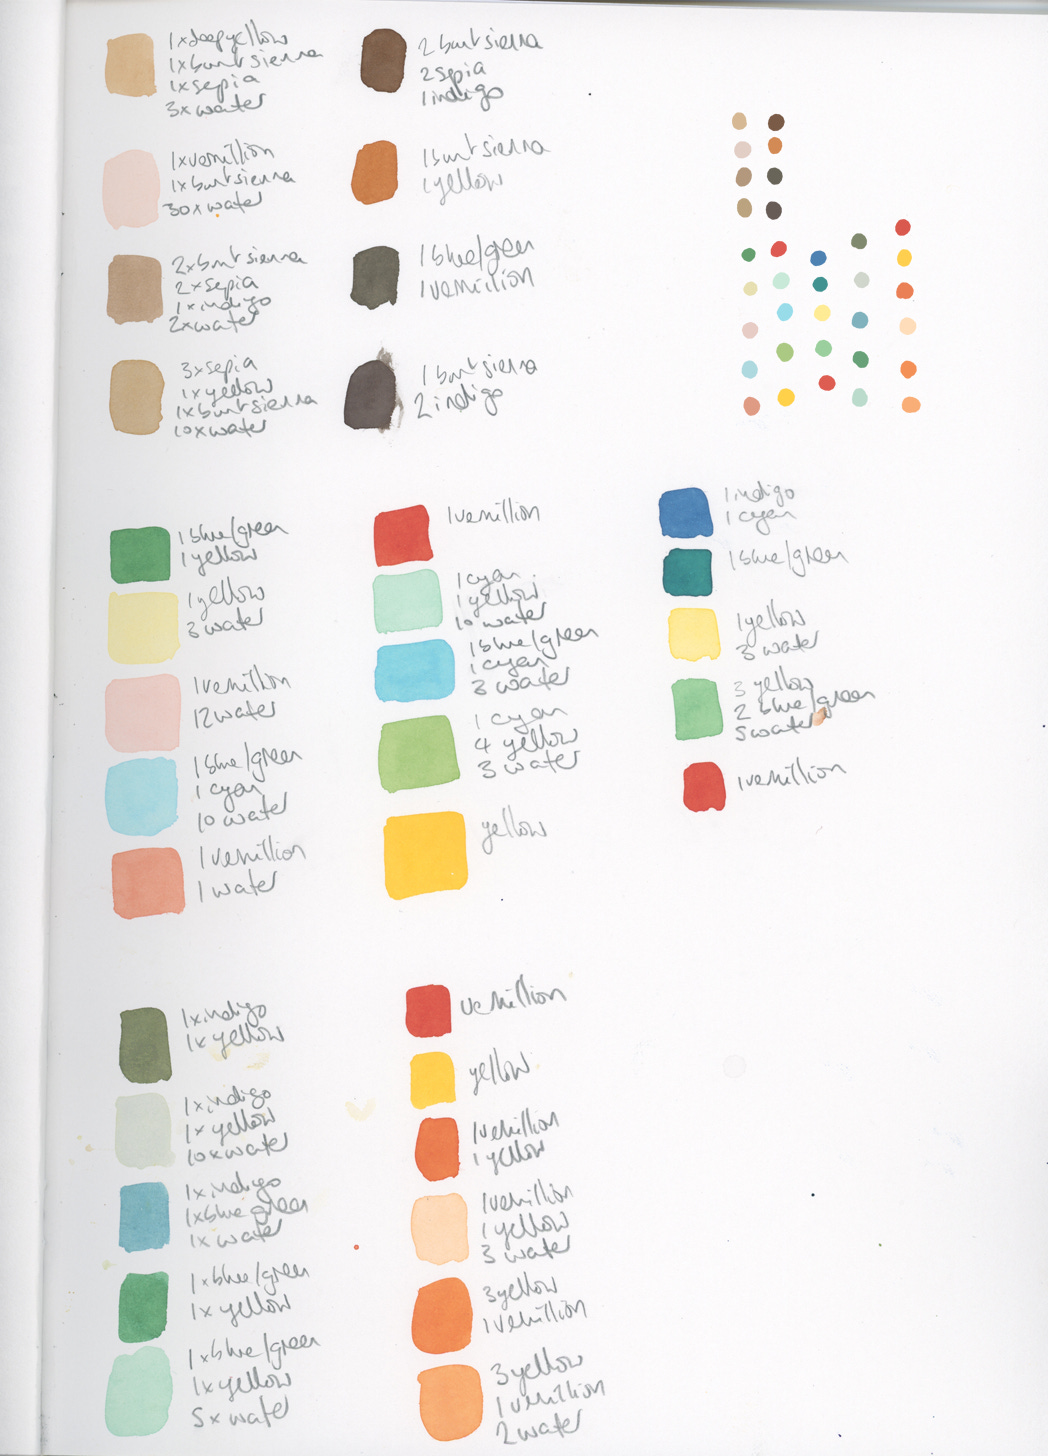 1xdeepyellow
1xburnt sienna
1xsepia
3xwater
2 burnt sienna
2 sepia
1 indigo
1xvermillion
1xburnt sienna
30xwater
1 burnt sienna
1 yellow
2xburnt sienna
2xsepia
1xindigo
2xwater
1 blue/green
1 vermillion
3xsepia
1xyellow
1xburnt sienna
10xwater
1 burnt sienna
2 indigo
1 blue/green
1 yellow
1 yellow
3 water
1 vermillion
12 water
1 blue/green
1 cyan
10 water
1 vermillion
1 water
1 vermillion
1 cyan
1 yellow
10 water
1 blue/green
1 cyan
3 water
1 cyan
4 yellow
3 water
yellow
1 indigo
1 cyan
1 blue/green
1 yellow
3 water
3 yellow
2 blue/green
5 water
1 vermillion
1xindigo
1xyellow
1xindigo
1xyellow
10xwater
1xindigo
1xblue green
1xwater
1xblue/green
1xyellow
1xblue/green
1xyellow
5xwater
vermillion
yellow
1 vermillion
1 yellow
1 vermillion
1 yellow
3 water
3 yellow
1 vermillion
3 yellow
1 vermillion
2 water